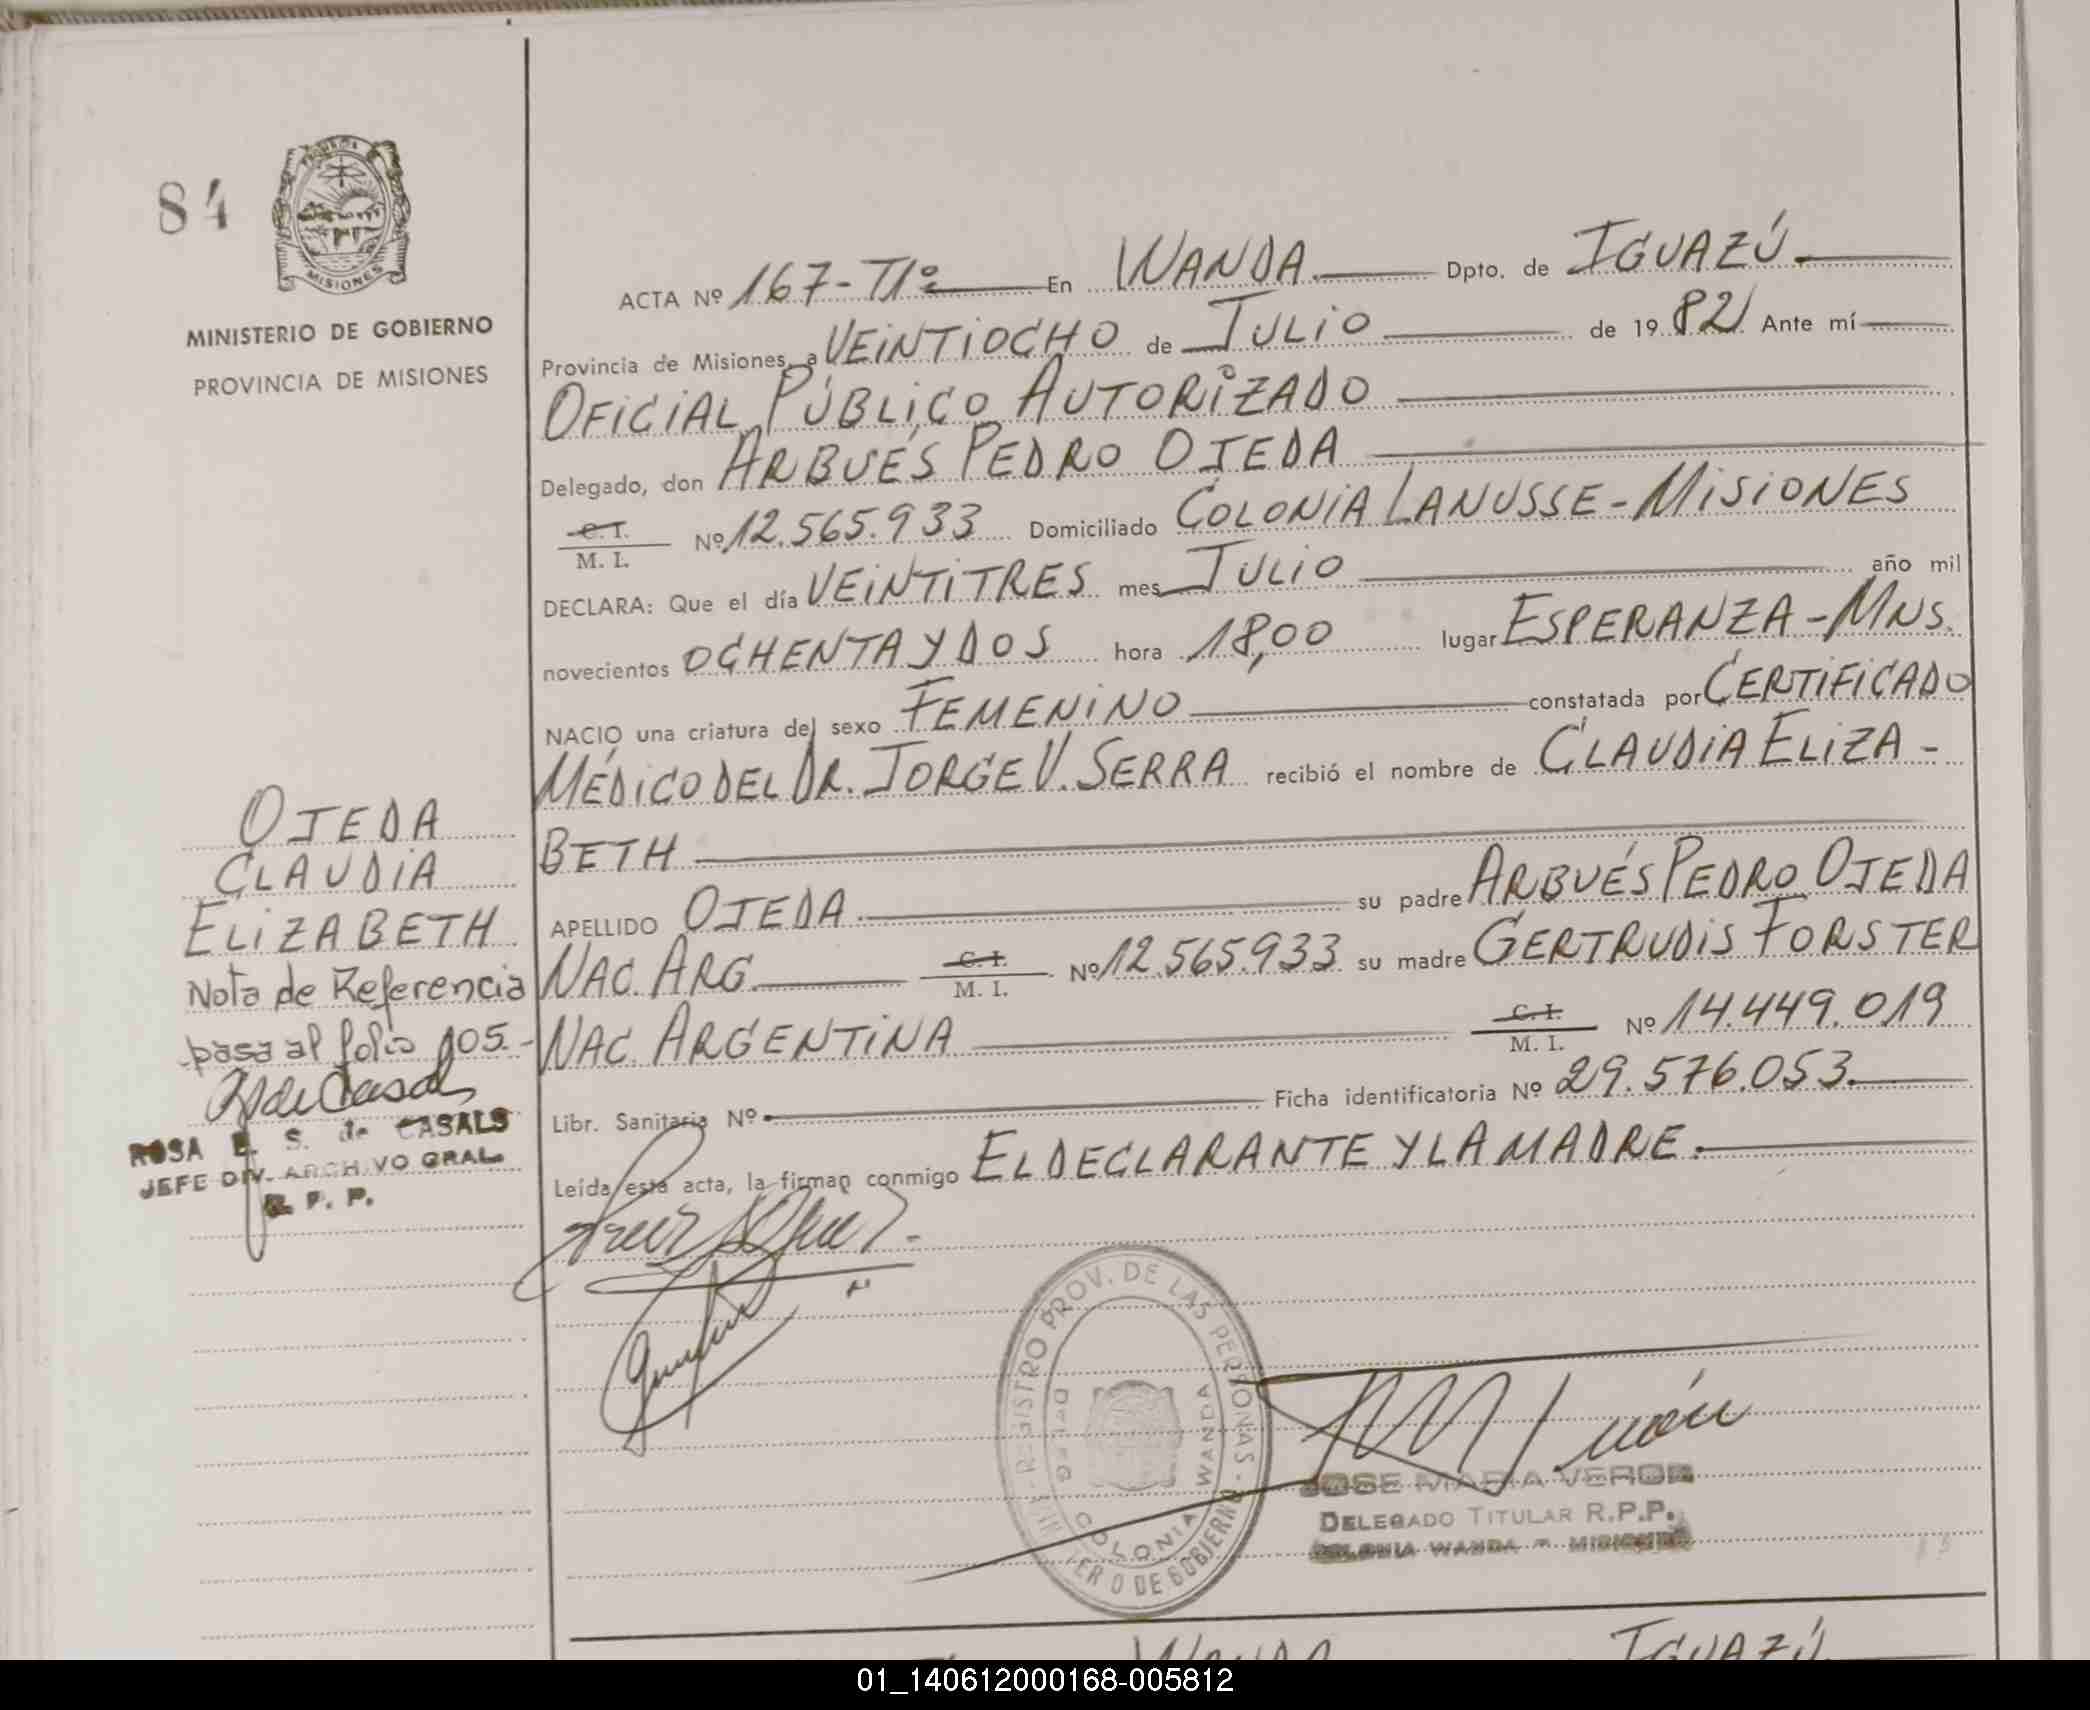 84
PROVINCIA DE
MISIONES
MINISTERIO DE GOBIERNO
PROVINCIA DE MISIONES
ACTA Nº 167-T1º En WANDA Dpto. de IGUAZÚ
Provincia de Misiones, a VEINTIOCHO de JULIO de 1982 Ante mí
OFICIAL PÚBLICO AUTORIZADO
Delegado, don ARBUÉS PEDRO OJEDA
C. I.
M. I. Nº 12.565.933 Domiciliado COLONIA LANUSSE - MISIONES
DECLARA: Que el día VEINTITRES mes JULIO año mil
novecientos OCHENTA Y DOS hora 18,00 lugar ESPERANZA - MNS.
NACIO una criatura del sexo FEMENINO constatada por CERTIFICADO
MÉDICO DEL DR. JORGE V. SERRA recibió el nombre de CLAUDIA ELIZA-
BETH
APELLIDO OJEDA su padre ARBUÉS PEDRO OJEDA
NAC. ARG. C. I. M. I. Nº 12.565.933 su madre GERTRUDIS FORSTER
NAC. ARGENTINA C. I. M. I. Nº 14.449.019
Libr. Sanitaria Nº Ficha identificatoria Nº 29.576.053
Leída esta acta, la firman conmigo EL DECLARANTE Y LA MADRE.
OJEDA
CLAUDIA
ELIZABETH
Nota de Referencia
pasa al folio 105.-
ROSA E. S. de CASALS
JEFE DIV. ARCHIVO GRAL.
R. P. P.
REGISTRO PROV. DE LAS PERSONAS - MINISTERIO DE GOBIERNO
COLONIA WANDA
JOSE MARIA VERON
DELEGADO TITULAR R.P.P.
COLONIA WANDA - MISIONES
WANDA IGUAZÚ
01_140612000168-005812